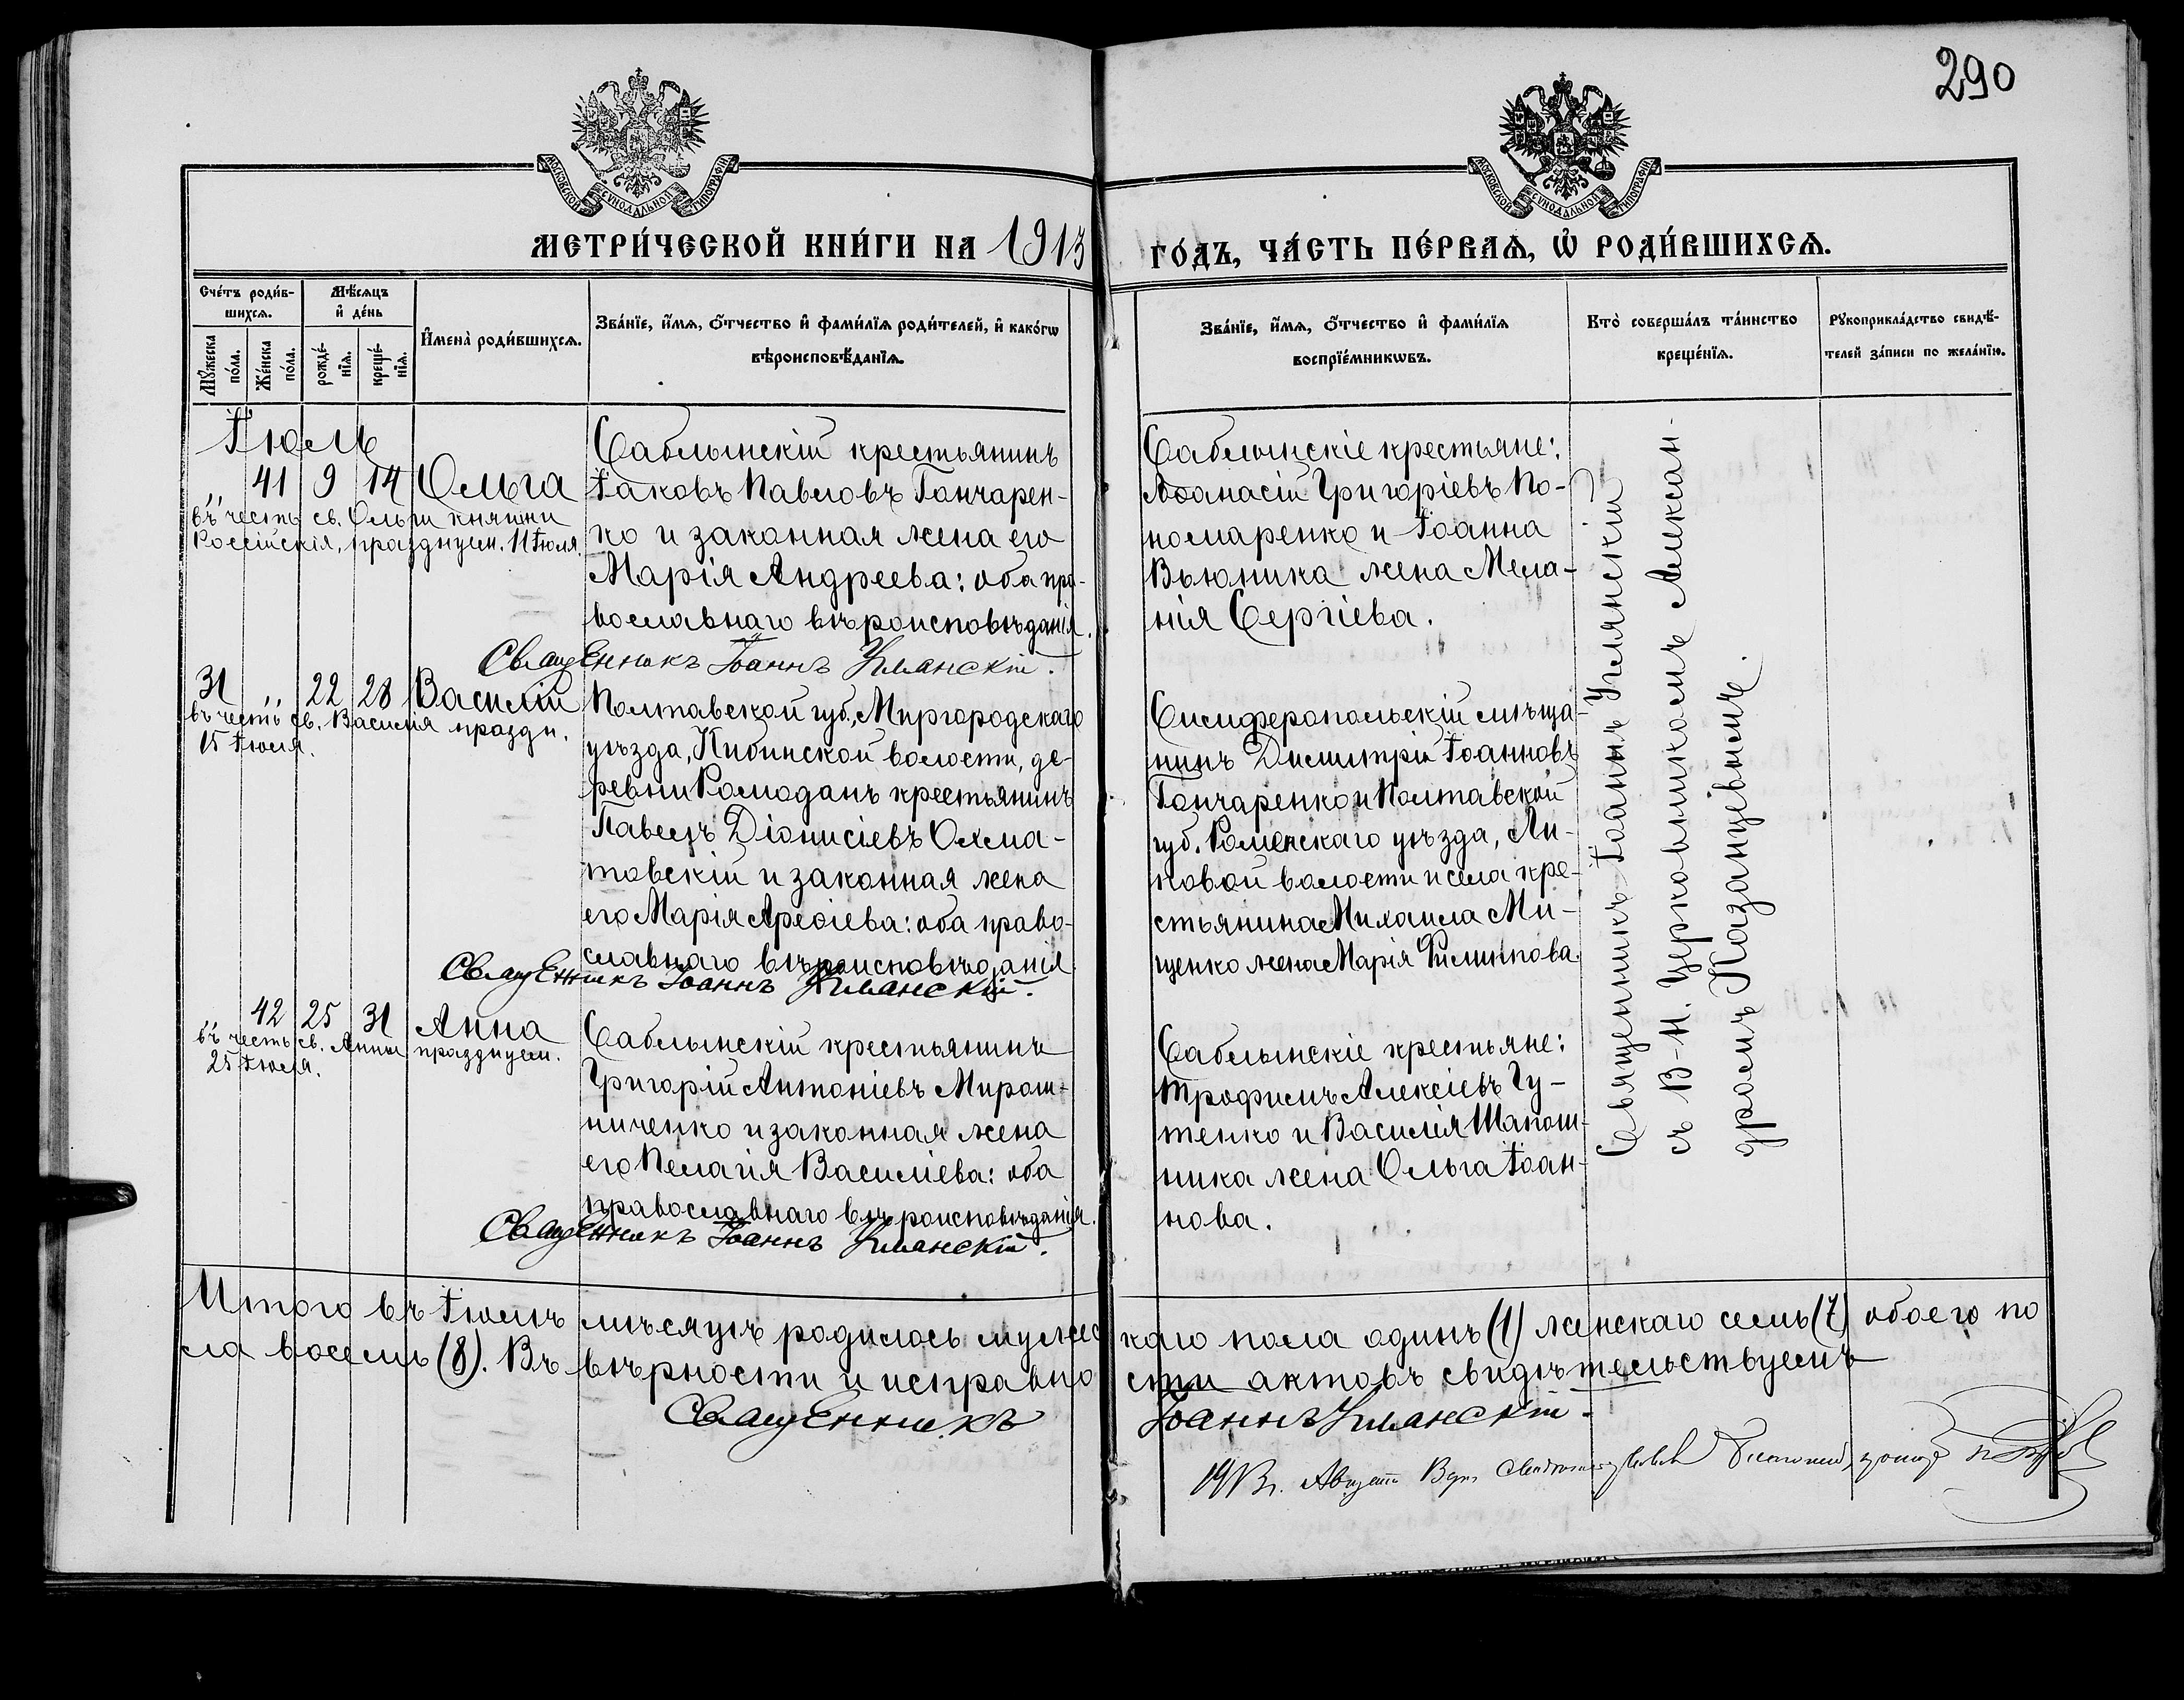 290
МОСКОВСКОЙ СѴНОДАЛЬНОЙ ТИПОГРАФІИ
МОСКОВСКОЙ СѴНОДАЛЬНОЙ ТИПОГРАФІИ
МЕТРИ́ЧЕСКОЙ КНИ́ГИ НА 1913 ГО́ДЪ, ЧА́СТЬ ПЕ́РВАѦ, Ѡ РОДИ́ВШИХСѦ.
Сче́тъ роди́в-
шихсѧ.
Мꙋжеска по́ла.
Же́нска по́ла.
Мѣ́сѧцъ
и҆ де́нь
рожде́-
нїѧ.
креще́-
нїѧ.
И҆мена̀ роди́вшихсѧ.
Зва́нїе, и҆́мѧ, ѻ҆́тчество и҆ фами́лїѧ роди́телей, и҆ како́гѡ
вѣроисповѣ́данїѧ.
Зва́нїе, и҆́мѧ, ѻ҆́тчество и҆ фами́лїѧ
воспрїе́мникѡвъ.
Кто̀ соверша́лъ та́инство
креще́нїѧ.
Рꙋкоприкла́дство свидѣ́-
телей за́писи по жела́нїю.
Іюль
„ 41 9 14 Ольга
въ честь св. Ольги княгини
Россійскія, празднуем. 11 Іюля.
Саблынскій крестьянинъ
Іаковъ Павловъ Гончарен-
ко и законная жена его
Марія Андреева: оба пра-
вославнаго вѣроисповѣданія.
Священникъ Іоаннъ Углянскій.
Саблынскіе крестьяне:
Аѳанасій Григоріевъ По-
номаренко и Іоанна
Вьюника жена Мела-
нія Сергіева.
31 „ 22 28 Василій
въ честь св. Василія праздн.
15 Іюля.
Полтавской губ., Миргородскаго
уѣзда, Кибинской волости, де-
ревни Ромоданъ крестьянинъ
Павелъ Діонисіевъ Охма-
товскій и законная жена
его Марія Ареѳіева: оба право-
славнаго вѣроисповѣданія
Священникъ Іоаннъ Углянскій.
Симферопольскій мѣща-
нинъ Димитрій Іоанновъ
Гончаренко и Полтавской
губ. Роменскаго уѣзда, Ли-
новой волости и села кре-
стьянина Михаила Ми-
щенко жена Марія Филиппова.
42 25 31 Анна
въ честь св. Анны празднуем.
25 Іюля.
Саблынскій крестьянинъ
Григорій Антоніевъ Мирош-
ниченко и законная жена
его Пелагія Василіева: оба
православнаго вѣроисповѣданія.
Священникъ Іоаннъ Углянскій.
Саблынскіе крестьяне:
Трофимъ Алексіевъ Гу-
тенко и Василія Шапош-
ника жена Ольга Іоан-
нова.
Священникъ Іоаннъ Углянскій
съ В-И. Церковникомъ Алексан-
дромъ Казанцевымъ.
Итого въ Іюлѣ мѣсяцѣ родилось мужескаго пола одинъ (1) женскаго семь (7) обоего по
ла восемь (8). Въ вѣрности и исправности актовъ свидѣтельствуемъ
Священникъ Іоаннъ Углянскій.
1913 г. Августа